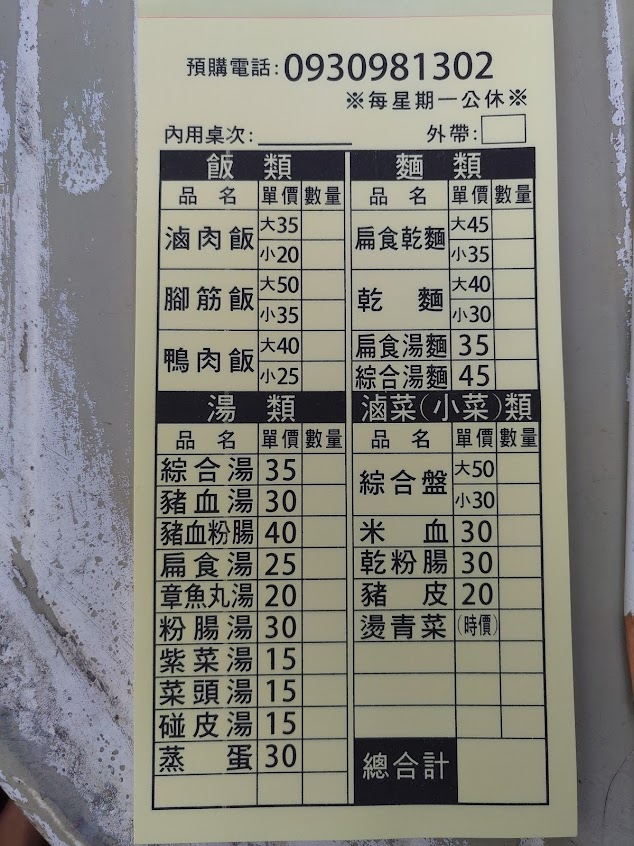 預購電話:0930981302
※每星期一公休※
內用桌次: 外帶:
飯類
品名 單價 數量
滷肉飯 大35
小20
腳筋飯 大50
小35
鴨肉飯 大40
小25
湯類
品名 單價 數量
綜合湯 35
豬血湯 30
豬血粉腸 40
扁食湯 25
章魚丸湯 20
粉腸湯 30
紫菜湯 15
菜頭湯 15
碰皮湯 15
蒸蛋 30
麵類
品名 單價 數量
扁食乾麵 大45
小35
乾麵 大40
小30
扁食湯麵 35
綜合湯麵 45
滷菜(小菜)類
品名 單價 數量
綜合盤 大50
小30
米血 30
乾粉腸 30
豬皮 20
燙青菜 (時價)
總合計